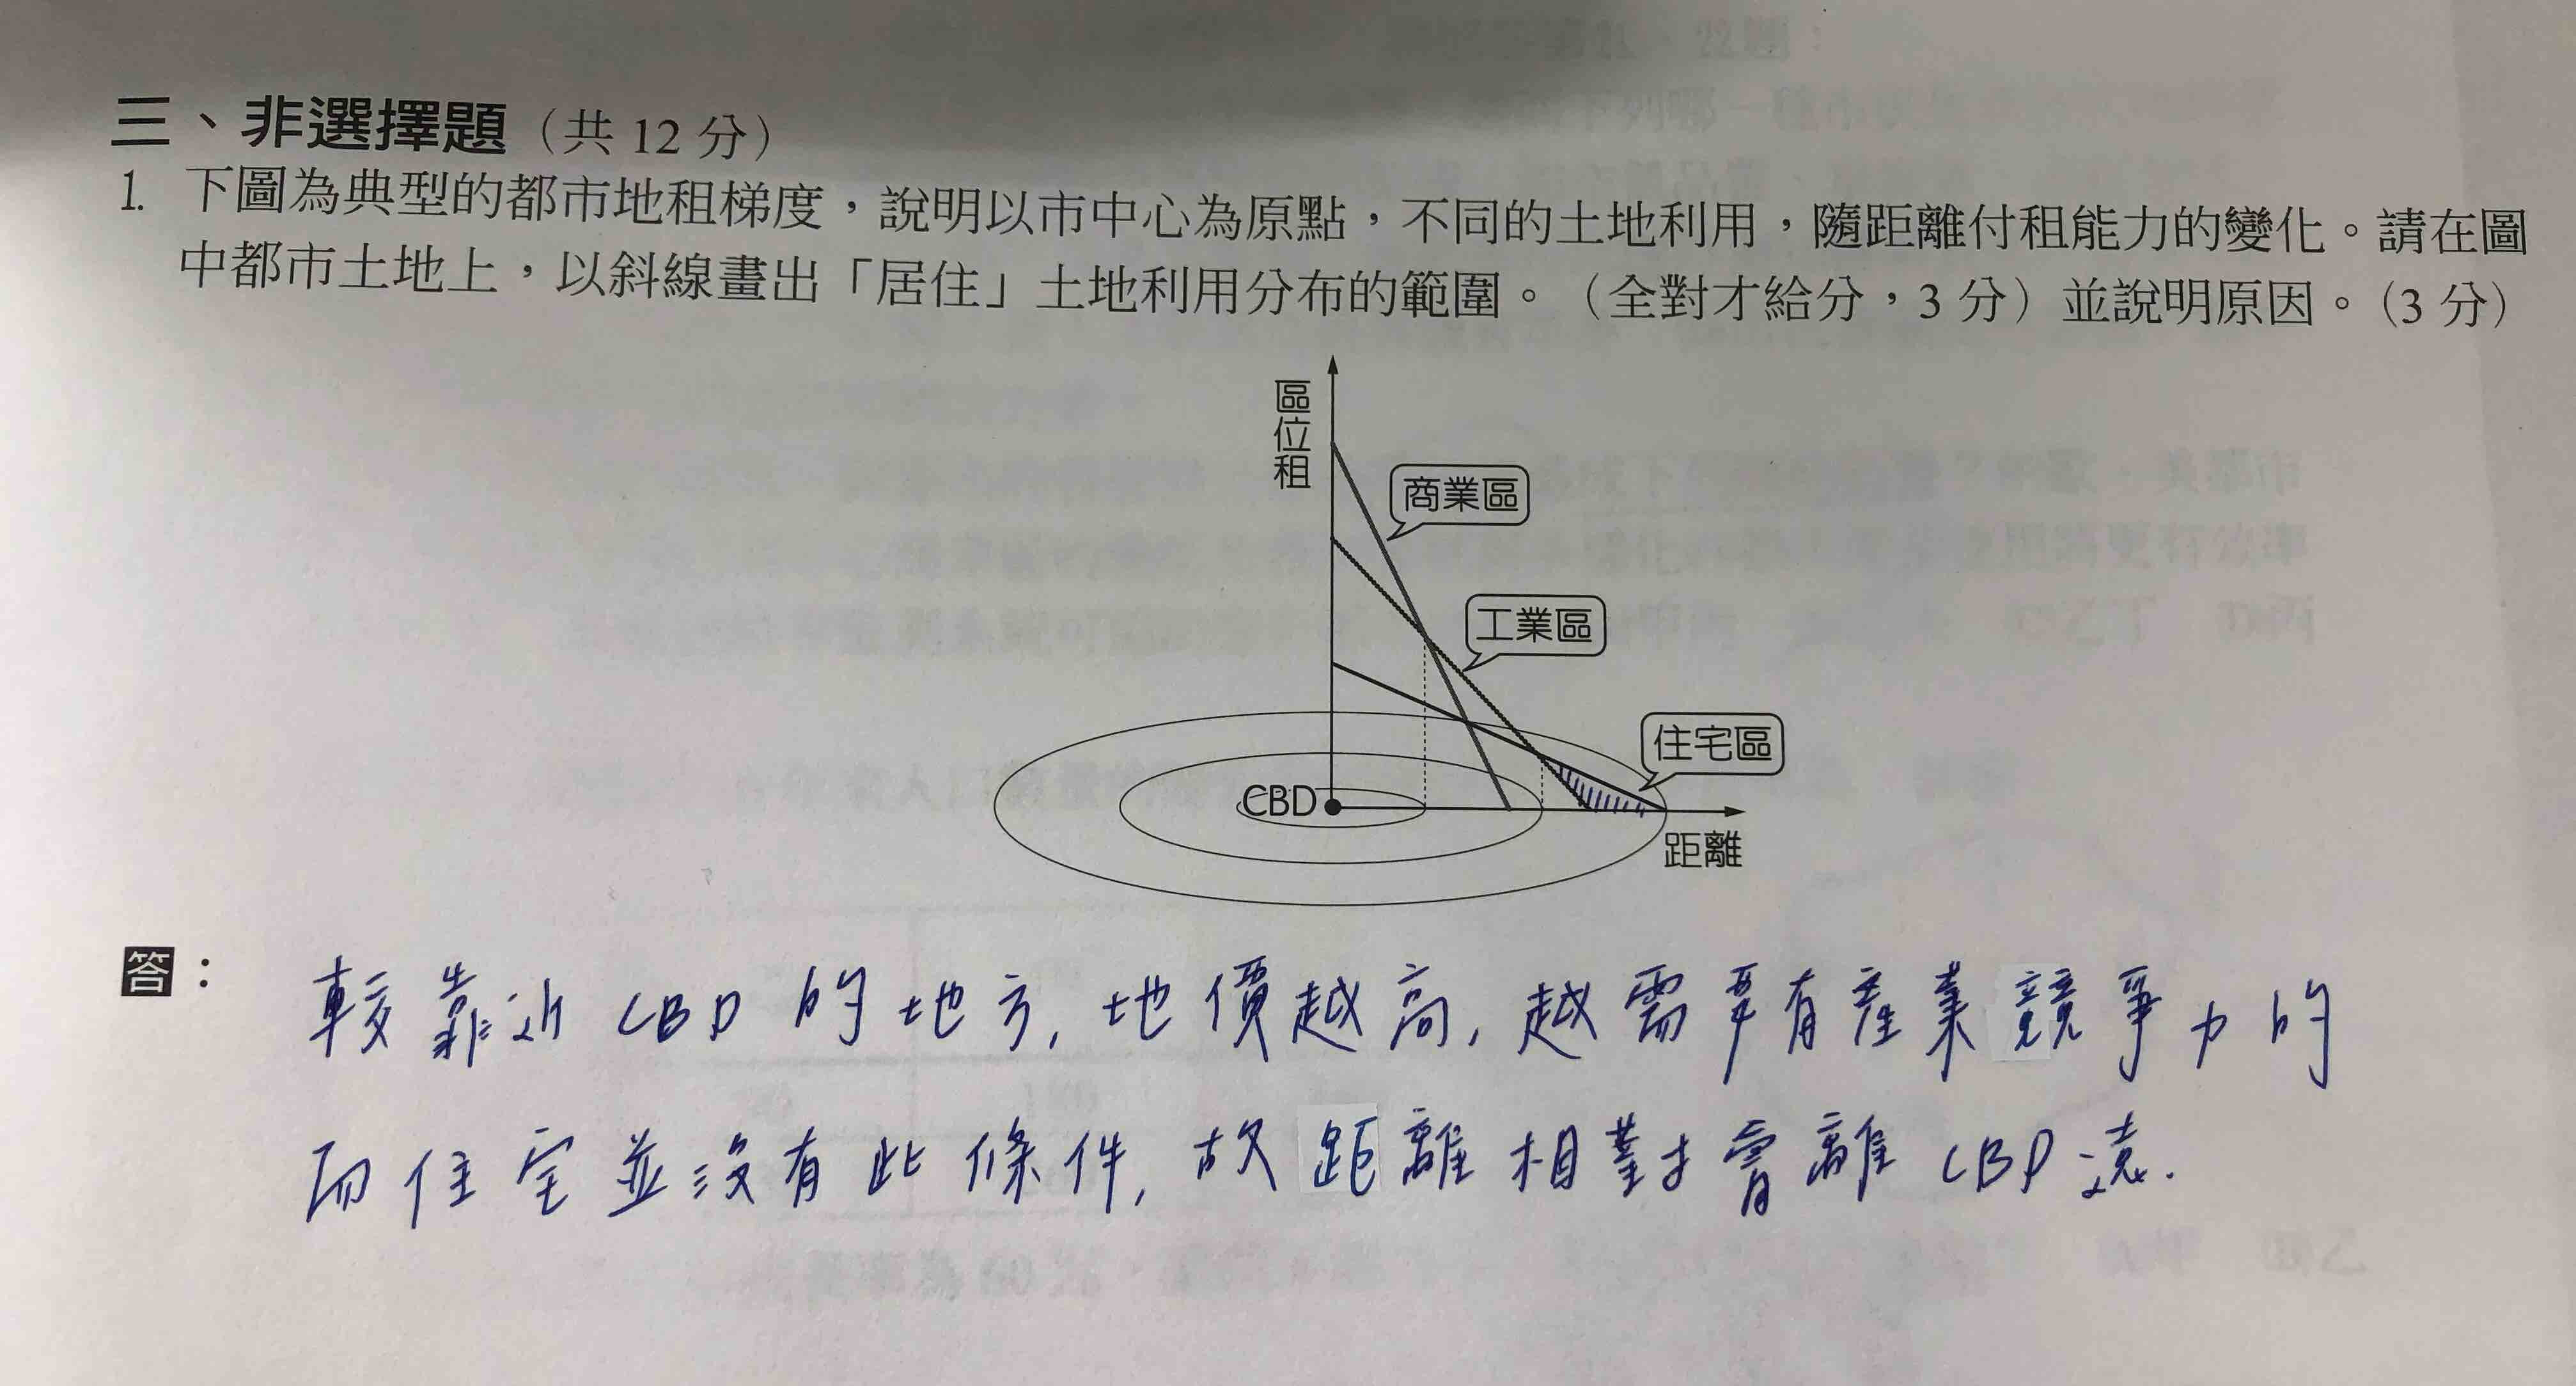 三、非選擇題（共 12 分）
1. 下圖為典型的都市地租梯度，說明以市中心為原點，不同的土地利用，隨距離付租能力的變化。請在圖
中都市土地上，以斜線畫出「居住」土地利用分布的範圍。（全對才給分，3 分）並說明原因。（3 分）
區位租
商業區
工業區
住宅區
CBD
距離
答：
較靠近 CBD 的地方, 地價越高, 越需要有產業競爭力的
而住宅並沒有此條件, 故距離相對會離 CBD 遠.